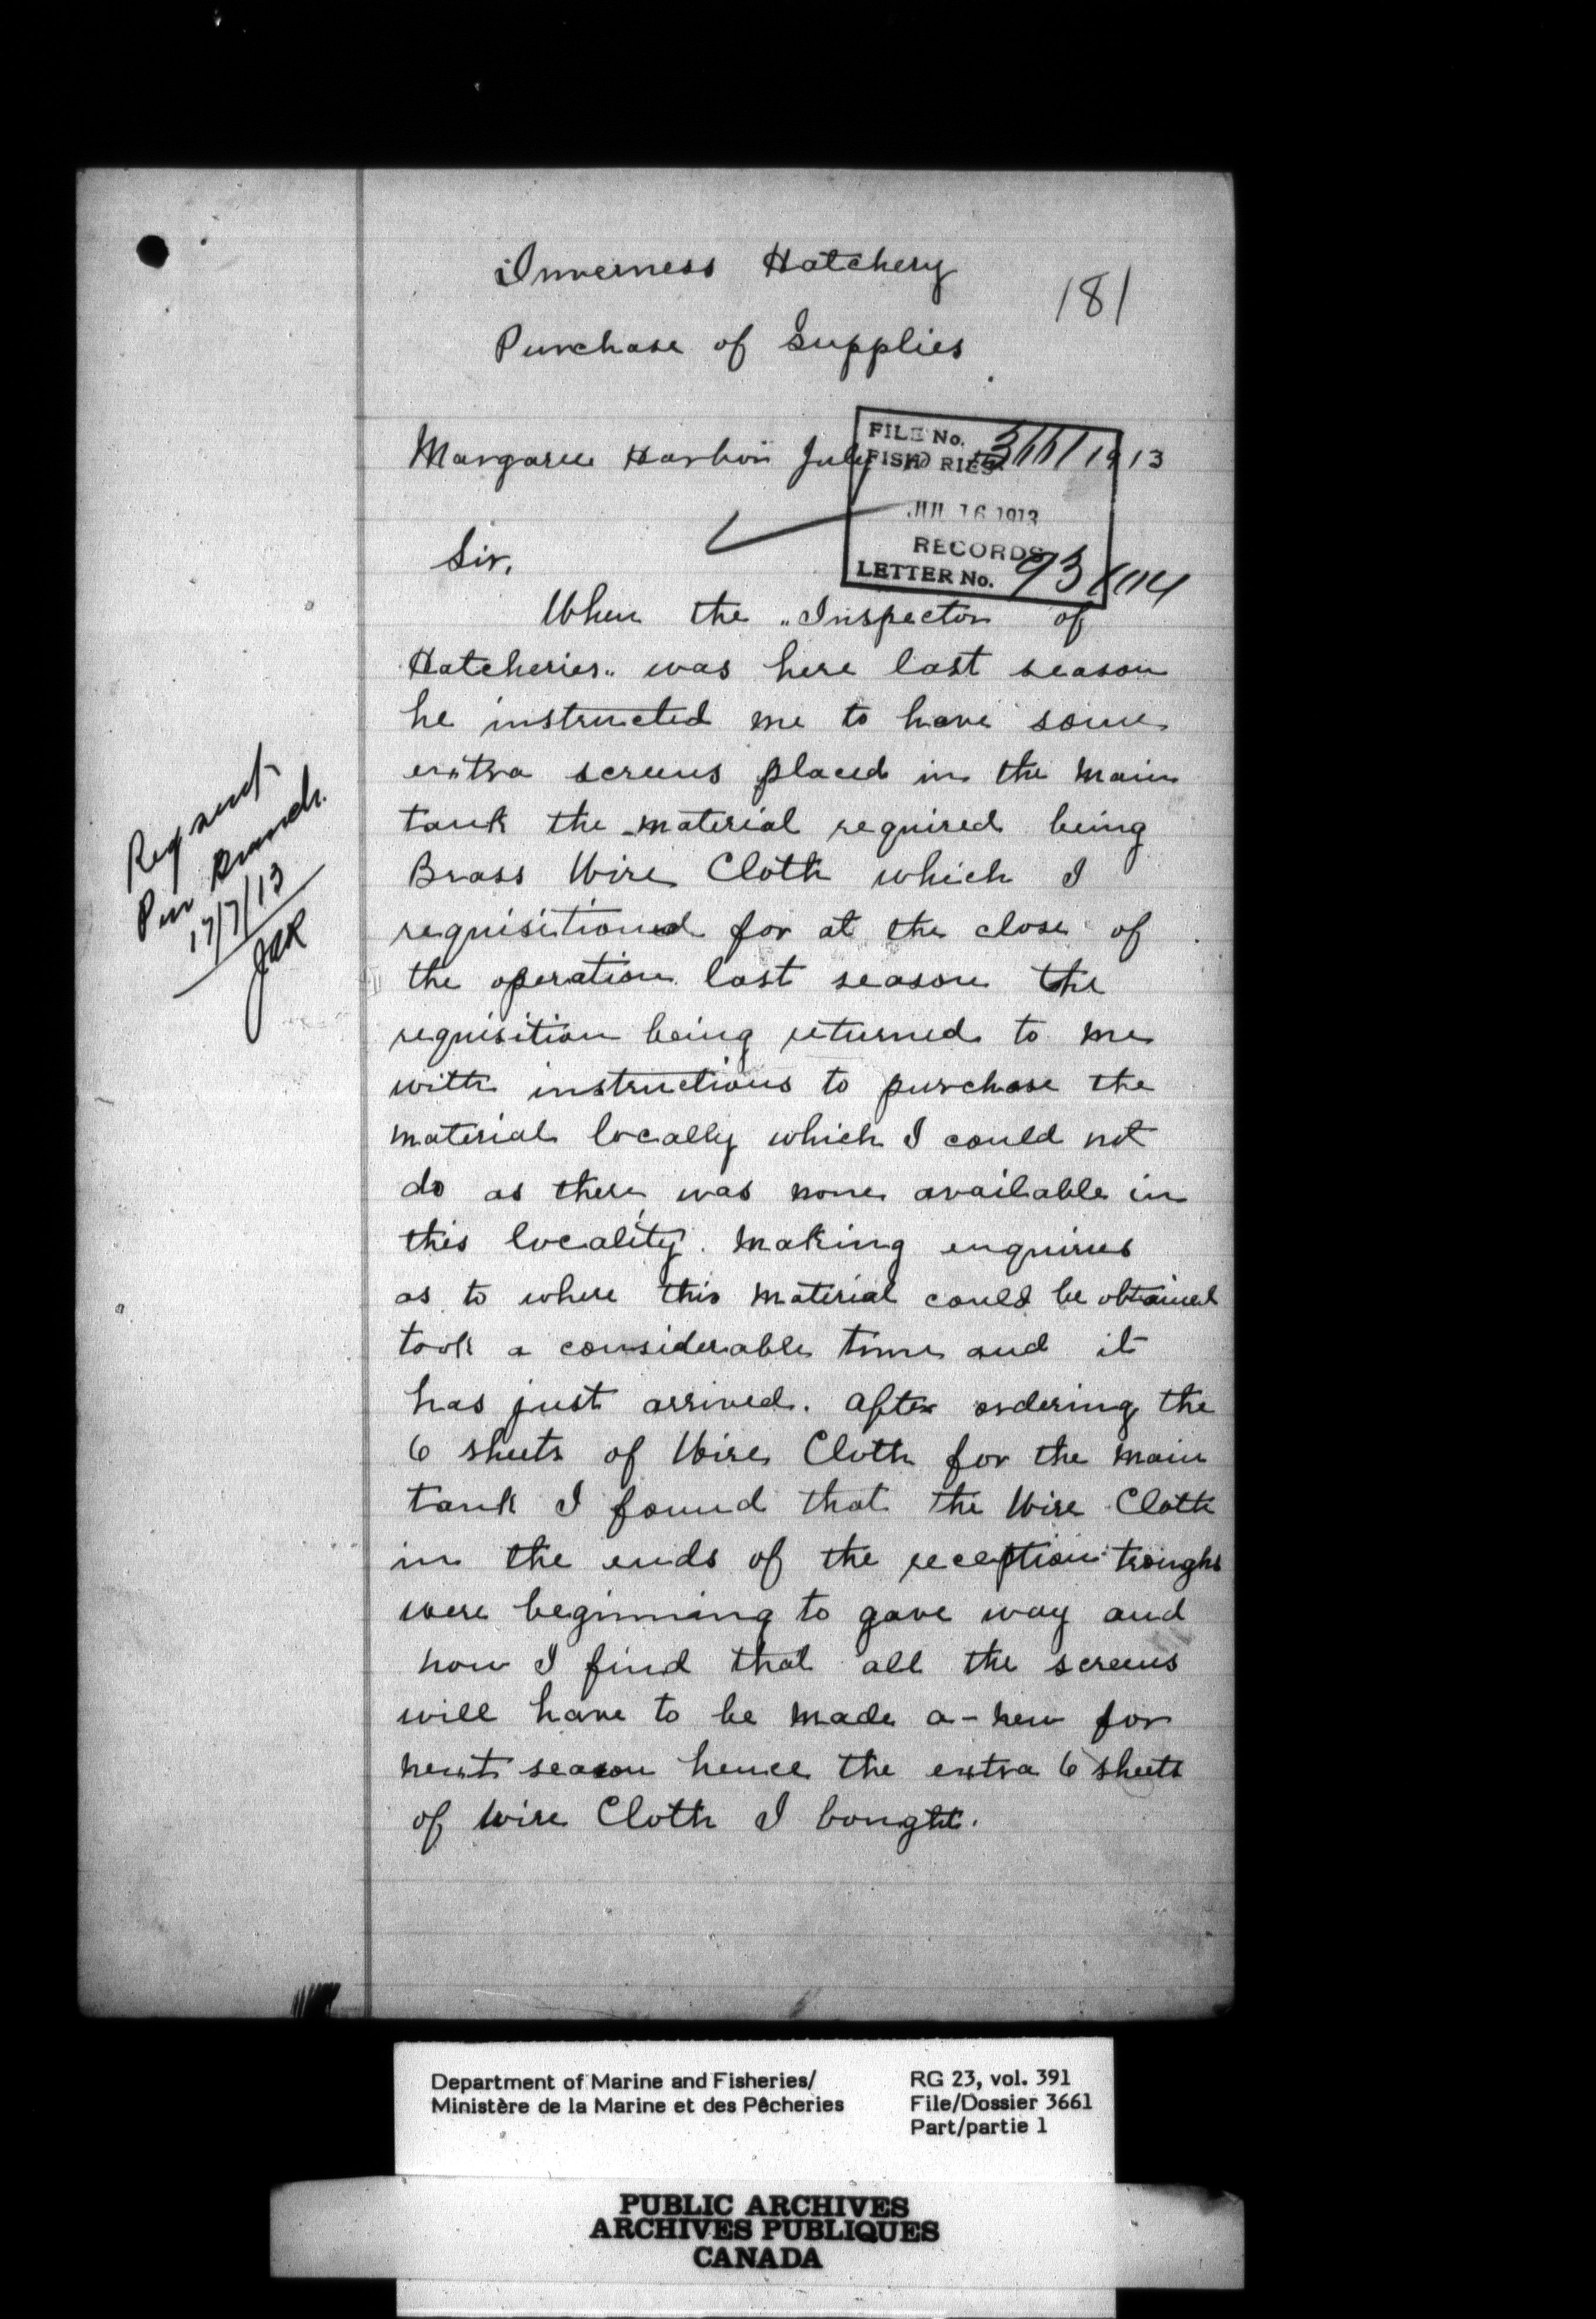 Inverness Hatchery
181
Purchase of Supplies
Margaree Harbour July 1913
FILE No. 3661
FISHERIES
JUL 16 1913
RECORDS
LETTER No.
Sir,
When the "Inspector of
Hatcheries" was here last season
he instructed me to have some
extra screens placed in the main
tank the material required being
Brass Wire Cloth which I
requisitioned for at the close of
the operation last season the
requisition being returned to me
with instructions to purchase the
material locally which I could not
do as there was none available in
this locality. Making enquiries
as to where this material could be obtained
took a considerable time and it
has just arrived. After ordering the
6 sheets of Wire Cloth for the main
tank I found that the Wire Cloth
in the ends of the reception troughs
were beginning to gave way and
now I find that all the screens
will have to be made a-new for
next season hence the extra 6 sheets
of Wire Cloth I bought.
Req sent
Pur Branch.
17/7/13
Department of Marine and Fisheries/
Ministère de la Marine et des Pêcheries
RG 23, vol. 391
File/Dossier 3661
Part/partie 1
PUBLIC ARCHIVES
ARCHIVES PUBLIQUES
CANADA